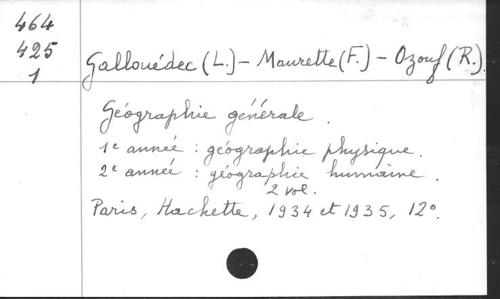 464
425
1
Gallouédec (L.) - Maurette (F.) - Ozouf (R.).
Géographie générale.
1e année : géographie physique.
2e année : géographie humaine.
2 vol.
Paris, Hachette, 1934 et 1935, 12°.